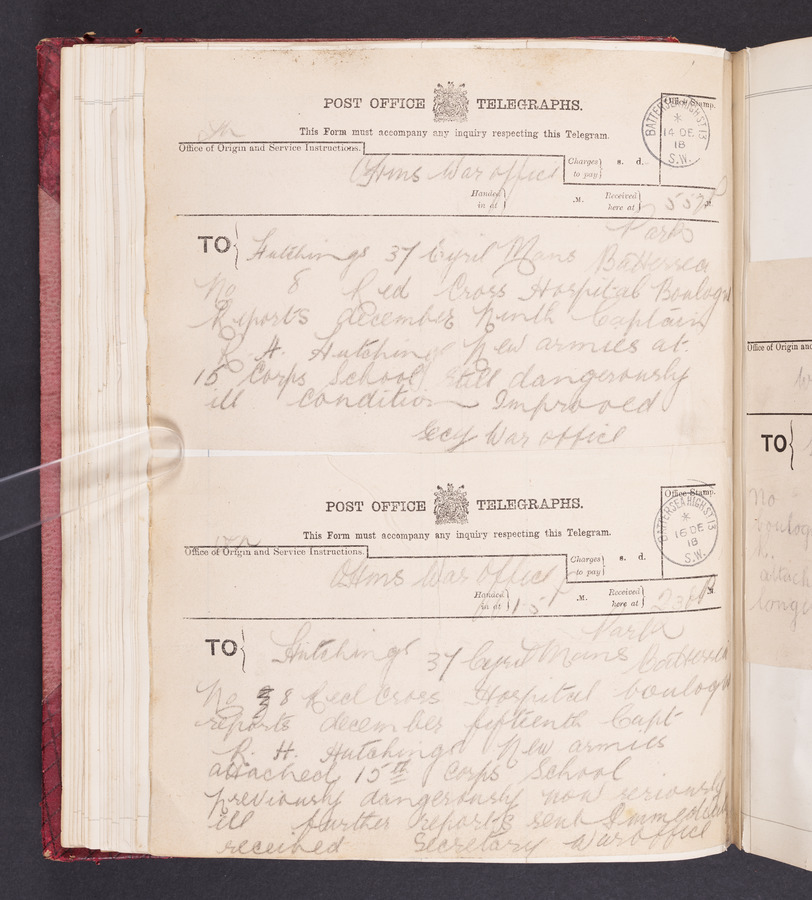 POST OFFICE TELEGRAPHS.
Office Stamp.
BATTERSEA HIGH ST
14 DE
18
S.W.
This Form must accompany any inquiry respecting this Telegram.
Office of Origin and Service Instructions.
OHms War office
Charges to pay } s. d.
Handed in at } .M. Received here at } 5 57 P M.
Park
TO { Hutchings 37 Cyril Mans Battersea
No 8 Red Cross Hospital Boulogn
Reports december Ninth Captain
R. H. Hutchings New armies at.
15 Corps School Still dangerously
ill condition Improved
Secy War office
POST OFFICE TELEGRAPHS.
Office Stamp.
BATTERSEA HIGH ST
16 DE
18
S.W.
This Form must accompany any inquiry respecting this Telegram.
Office of Origin and Service Instructions.
OHms War office
Charges to pay } s. d.
Handed in at } 1-5 .M. Received here at } M.
Park
TO { Hutchings 37 Cyril Mans Battersea
No 8 Red Cross Hospital boulogn
reports december fifteenth Capt
R. H. Hutchings New armies
attached 15th Corps School
previously dangerously now seriously
ill further reports sent Immediately
received Secretary War office
Office of Origin an
TO {
No
boulog
attach
longe